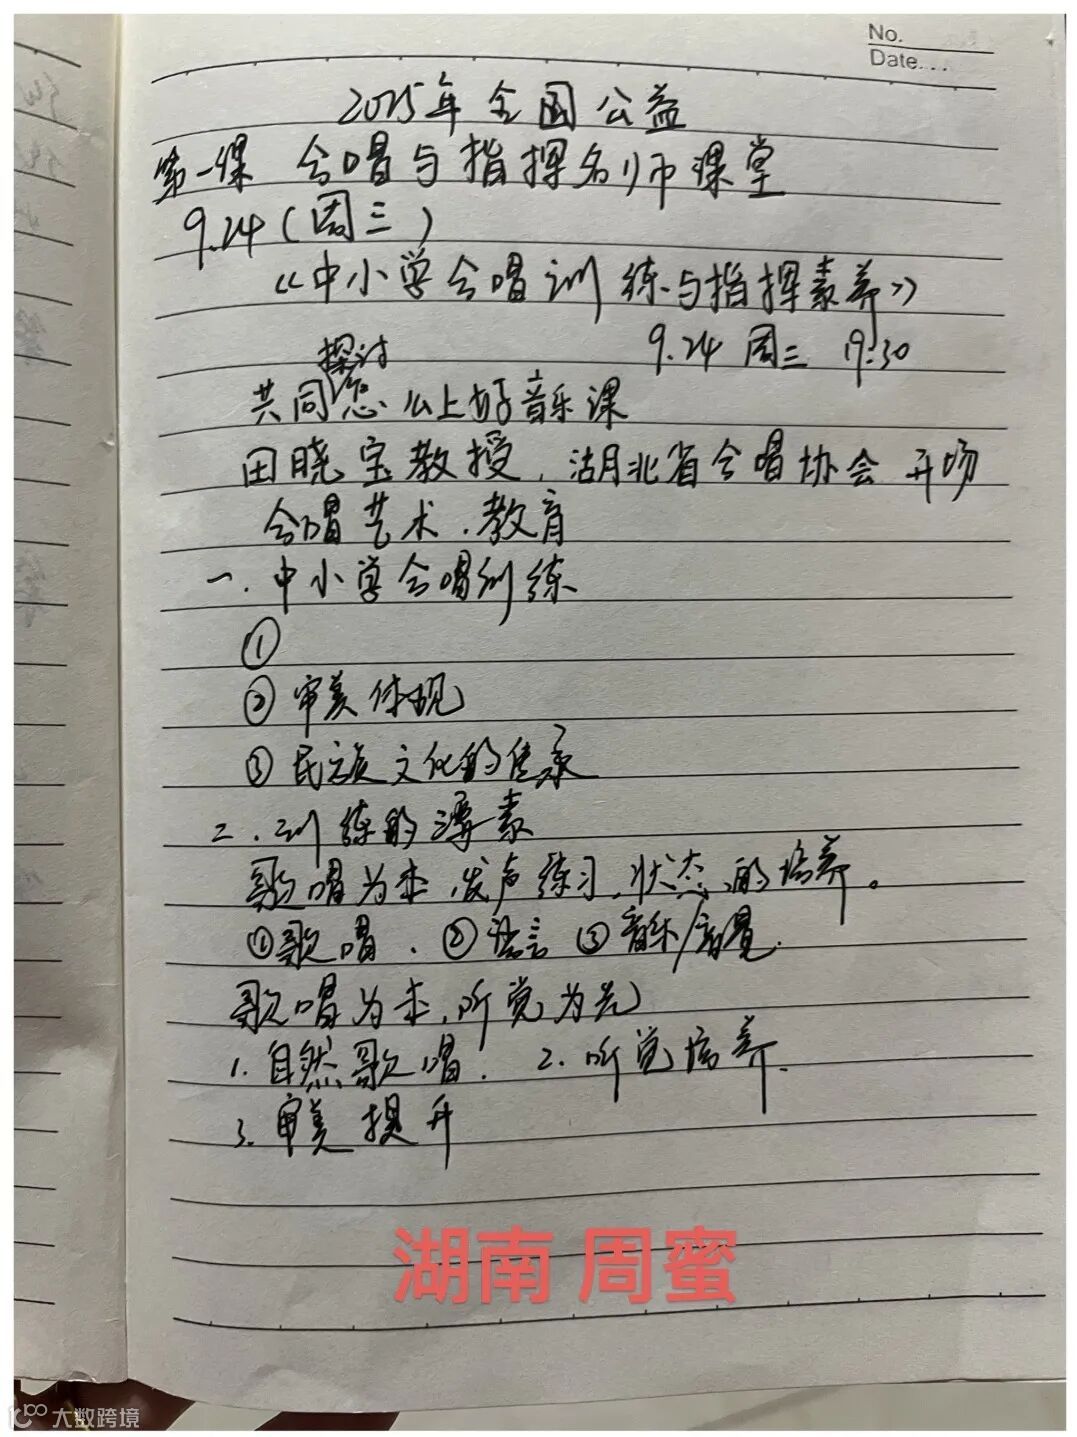 No.
Date...
2025年全国公益
第一课 合唱与指挥名师课堂
9.24(周三)
《中小学合唱训练与指挥素养》
9.24 周三 19:30
探讨
共同 怎么上好音乐课
田晓宝教授,湖北省合唱协会 开场
合唱艺术.教育
一.中小学合唱训练
①
②审美体现
③民族文化的传承
二.训练的要素
歌唱为本,发声练习,状态的培养。
①歌唱.②语言③音乐/音觉.
歌唱为本,听觉为先
1.自然歌唱. 2.听觉培养.
3.审美提升
湖南 周蜜
大数跨境